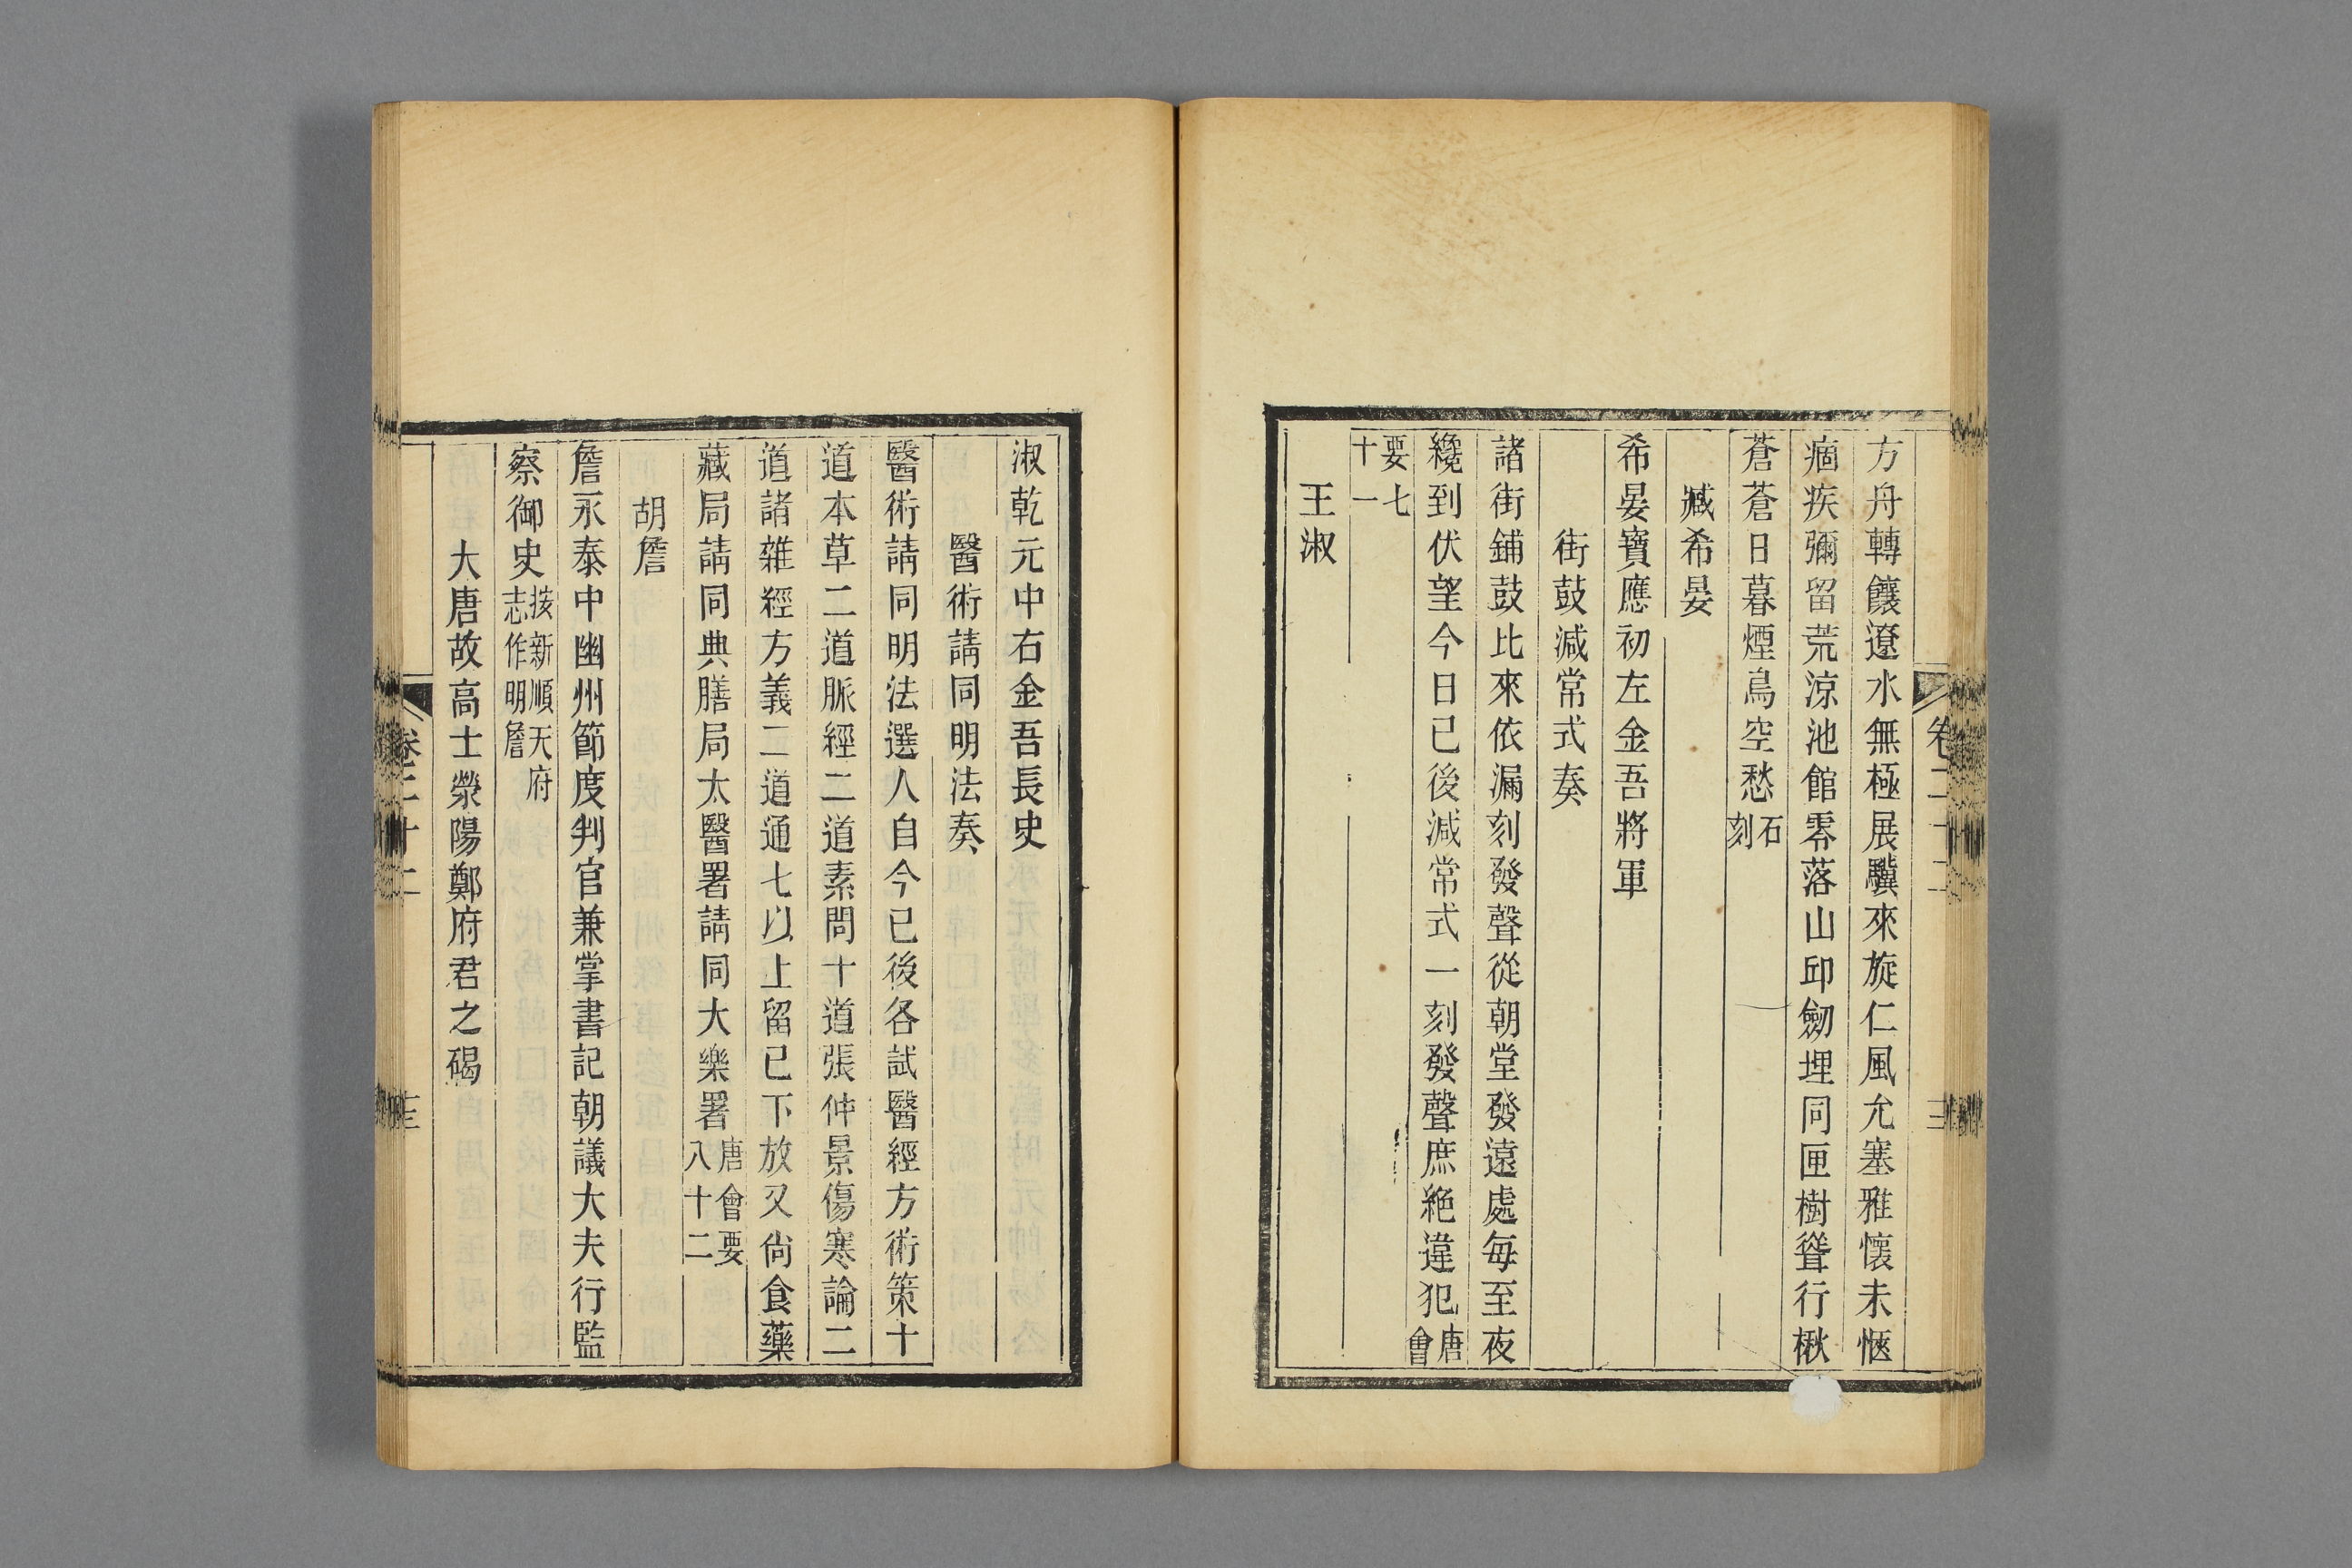 方舟轉饟遼水無極展驥來旋仁風允塞雅懷未愜
痼疾彌留荒涼池館零落山邱劒埋同匣樹聳行楸
蒼蒼日暮煙鳥空愁石刻
臧希晏
希晏寶應初左金吾將軍
街鼓減常式奏
諸街鋪鼓比來依漏刻發聲從朝堂發遠處每至夜
纔到伏望今日已後減常式一刻發聲庶絶違犯唐會
要七十一
王淑
淑乾元中右金吾長史
醫術請同明法奏
醫術請同明法選人自今已後各試醫經方術策十
道本草二道脈經二道素問十道張仲景傷寒論二
道諸雜經方義二道通七以上留已下放又尙食藥
藏局請同典膳局太醫署請同大樂署唐會要八十二
胡詹
詹永泰中幽州節度判官兼掌書記朝議大夫行監
察御史按新順天府志作明詹
大唐故高士滎陽鄭府君之碣
卷二十二